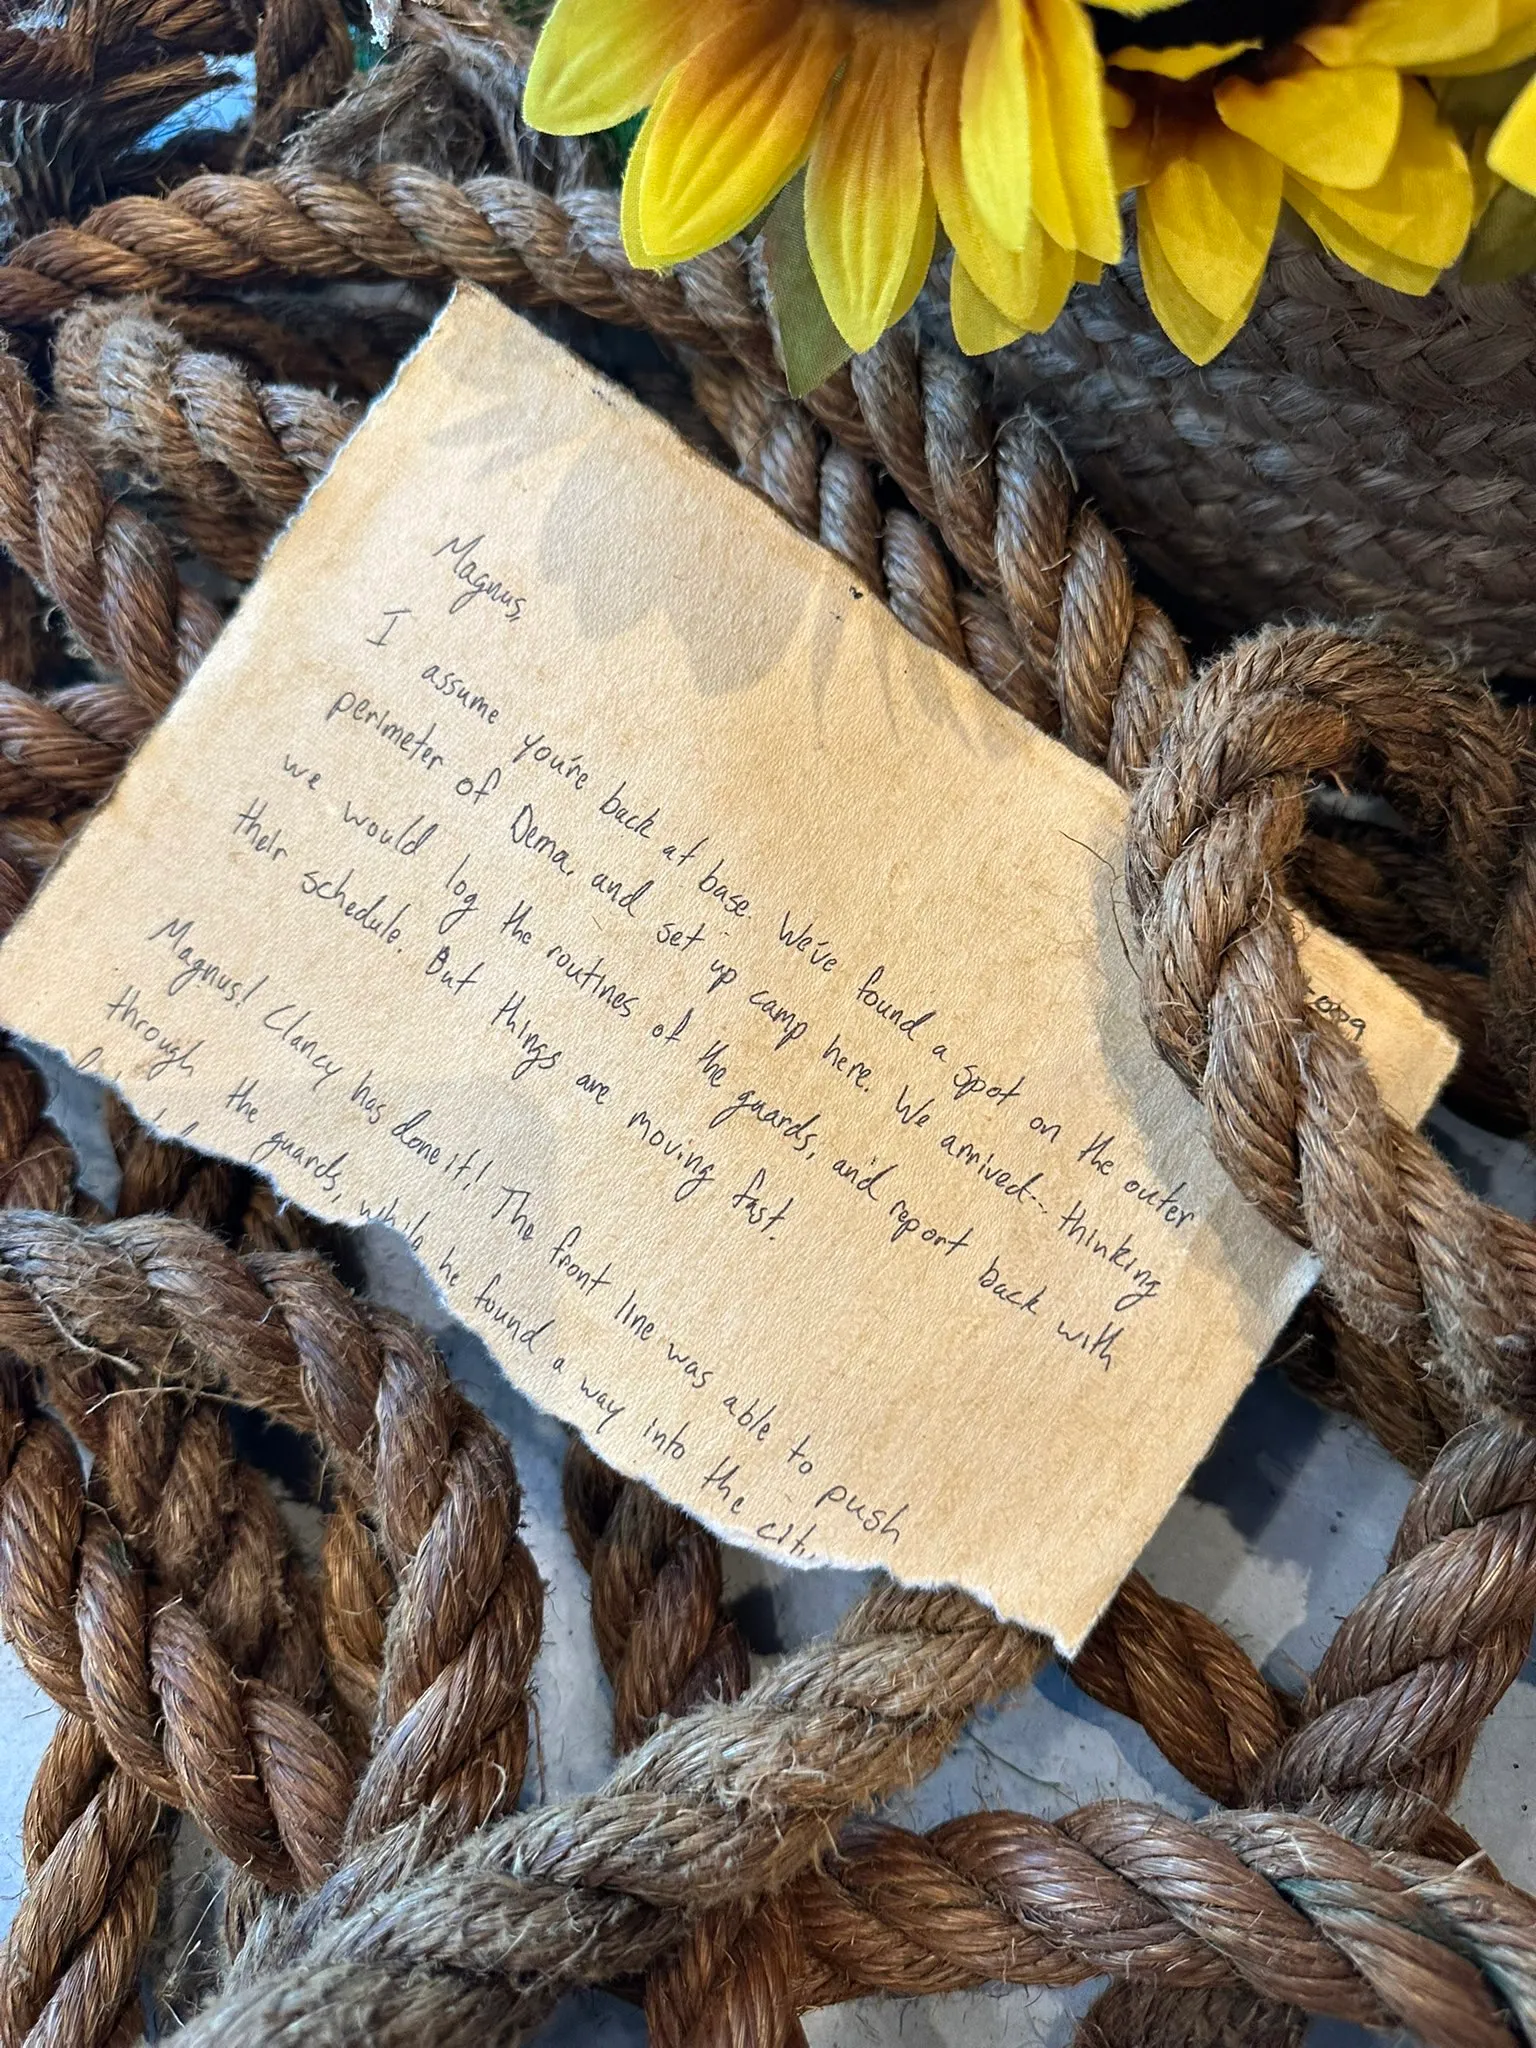 Magnus,
I assume you're back at base. We've found a spot on the outer
perimeter of Dema, and set up camp here. We arrived-- thinking
we would log the routines of the guards, and report back with
their schedule. But things are moving fast.
Magnus! Clancy has done it! The front line was able to push
through the guards, while he found a way into the